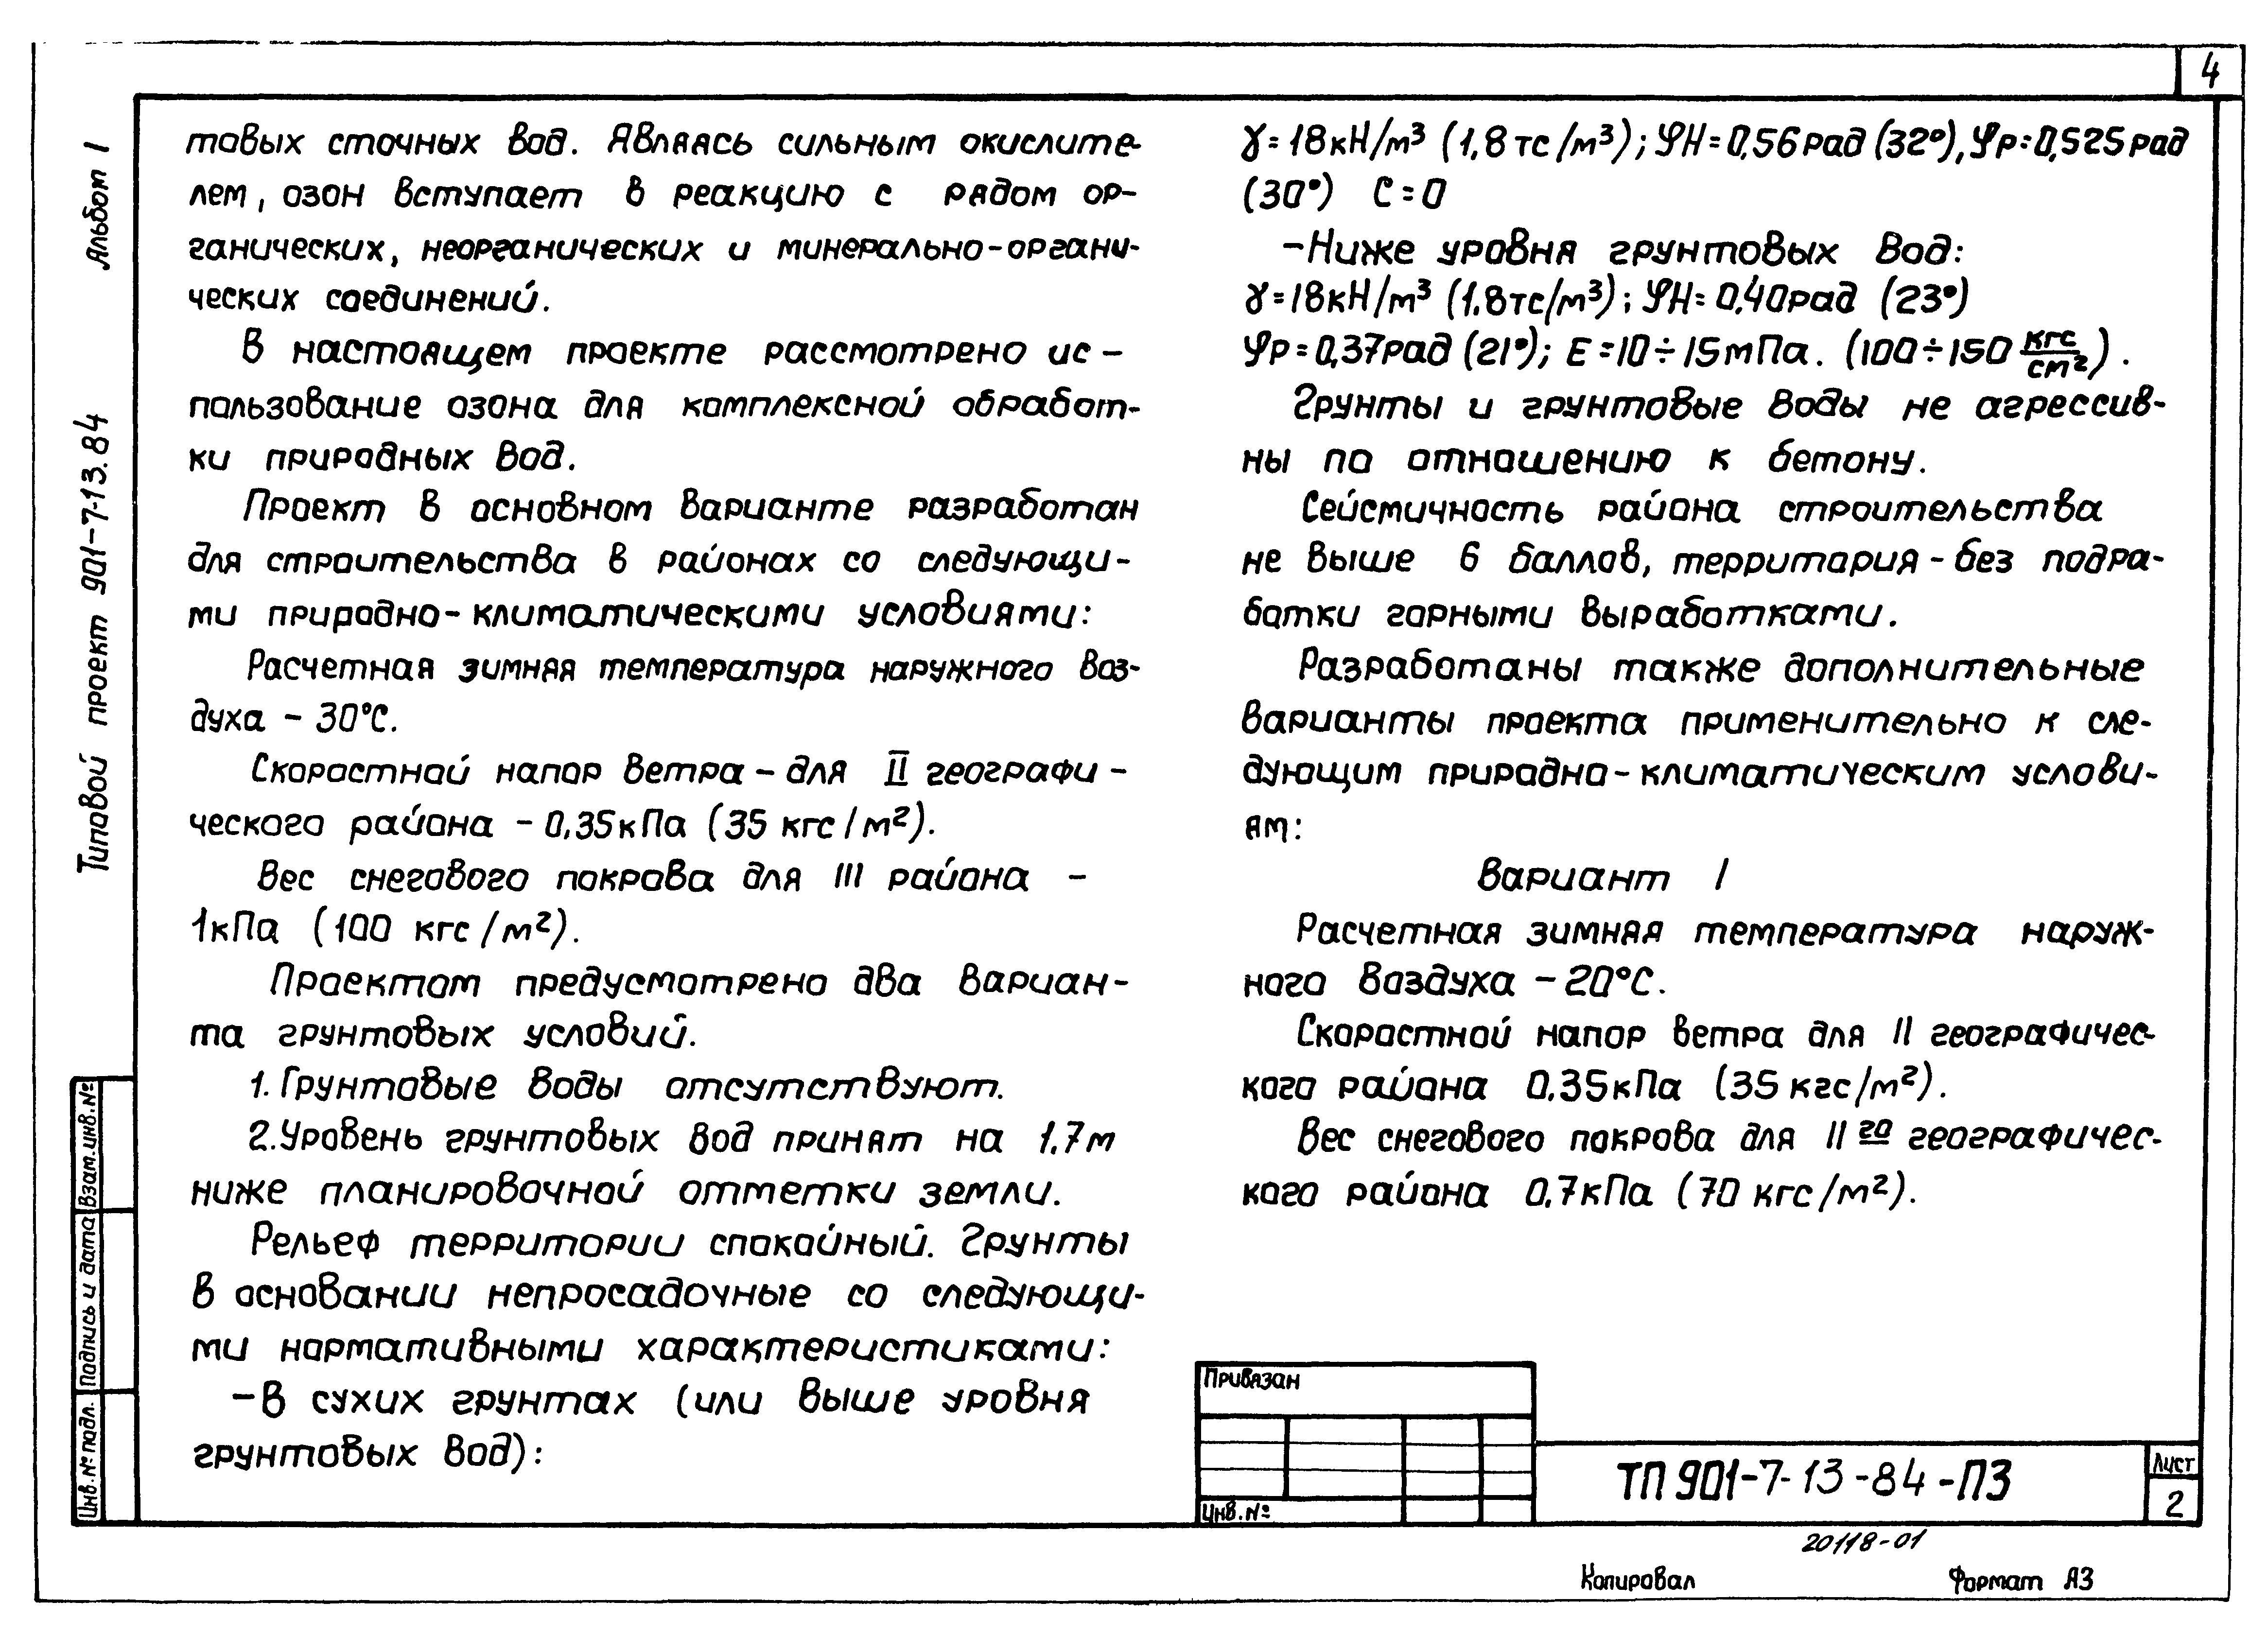 4
Альбом I
Типовой проект 901-7-13.84
товых сточных вод. Являясь сильным окислите-
лем, озон вступает в реакцию с рядом ор-
ганических, неорганических и минерально-органи-
ческих соединений.
В настоящем проекте рассмотрено ис-
пользование озона для комплексной обработ-
ки природных вод.
Проект в основном варианте разработан
для строительства в районах со следующи-
ми природно-климатическими условиями:
Расчетная зимняя температура наружного воз-
духа - 30°С.
Скоростной напор ветра - для II географи-
ческого района - 0,35кПа (35 кгс/м²).
Вес снегового покрова для III района -
1кПа (100 кгс/м²).
Проектом предусмотрено два вариан-
та грунтовых условий.
1. Грунтовые воды отсутствуют.
2. Уровень грунтовых вод принят на 1,7м
ниже планировочной отметки земли.
Рельеф территории спокойный. Грунты
в основании непросадочные со следующи-
ми нормативными характеристиками:
- В сухих грунтах (или выше уровня
грунтовых вод):
γ=18кН/м³ (1,8 тс/м³); φН=0,56рад (32°), φр=0,525рад
(30°) С=0
- Ниже уровня грунтовых вод:
γ=18кН/м³ (1,8тс/м³); φН=0,40рад (23°)
φр=0,37рад (21°); Е=10÷15мПа. (100÷150 кгс/см²).
Грунты и грунтовые воды не агрессив-
ны по отношению к бетону.
Сейсмичность района строительства
не выше 6 баллов, территория - без подра-
ботки горными выработками.
Разработаны также дополнительные
варианты проекта применительно к сле-
дующим природно-климатическим услови-
ям:
Вариант I
Расчетная зимняя температура наруж-
ного воздуха - 20°С.
Скоростной напор ветра для II географичес-
кого района 0,35кПа (35 кгс/м²).
Вес снегового покрова для II го географичес-
кого района 0,7кПа (70 кгс/м²).
Взам.инв.№
Подпись и дата
Инв.№ подл.
Привязан
Инв.№
ТП 901-7-13-84-ПЗ
Лист
2
20118-01
Копировал
Формат А3